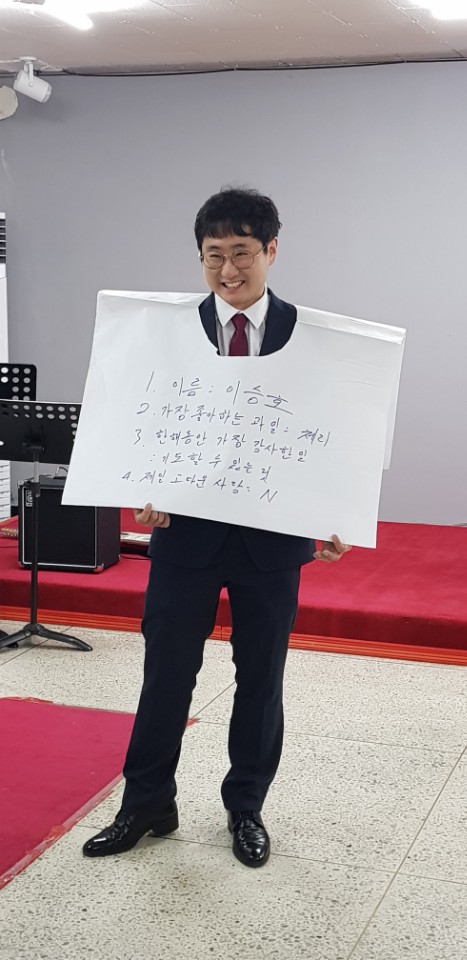 1. 이름 : 이승호
2. 가장 좋아하는 과일 : 체리
3. 한해동안 가장 감사한일
: 기도할 수 있는 것
4. 제일 고마운 사람 : N